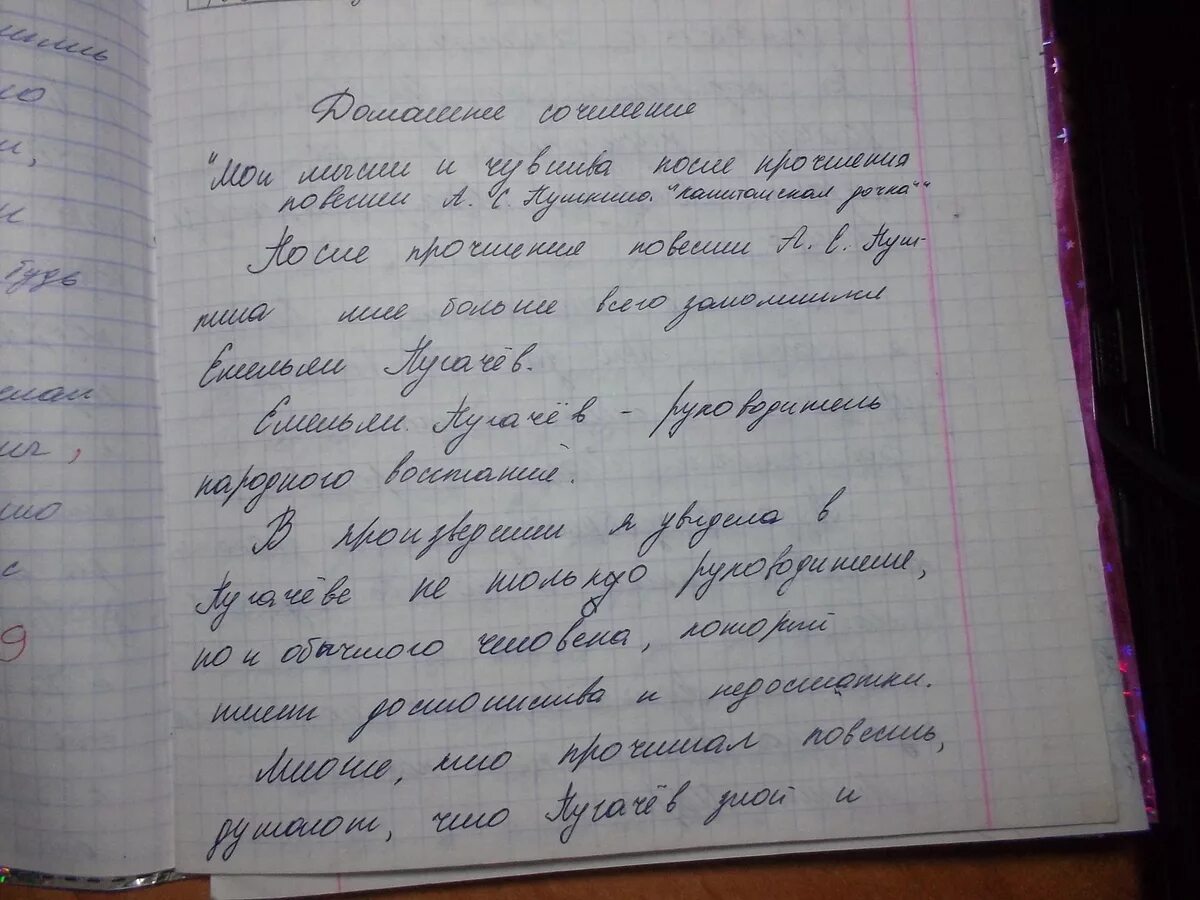 Домашнее сочинение
"Мои мысли и чувства после прочтения
повести А. С. Пушкина. "Капитанская дочка""
После прочтения повести А. С. Пуш-
кина мне больше всего запомнился
Емельян Пугачёв.
Емельян Пугачёв - руководитель
народного восстания.
В произведении я увидела в
Пугачёве не только руководителя,
но и обычного человека, который
имеет достоинства и недостатки.
Многие, кто прочитал повесть,
думают, что Пугачёв злой и
будь
с
9